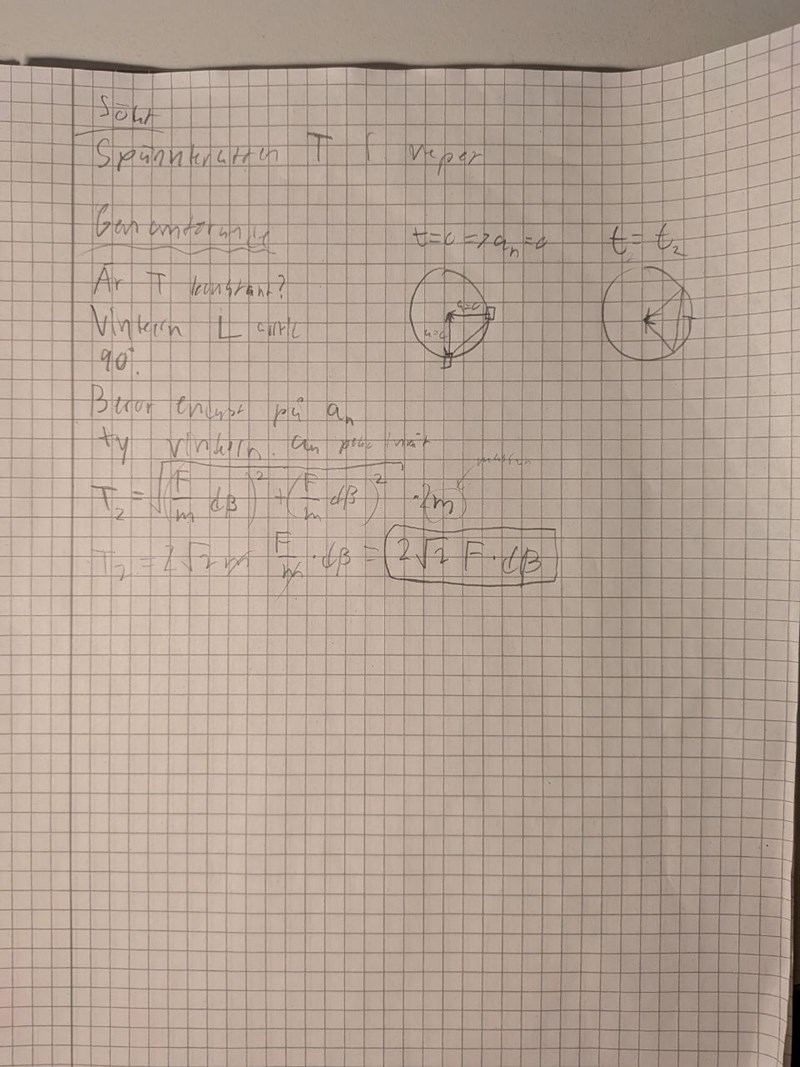 Sökt
Spännkraften T i repet
Genomförande
t=0 => aₙ=0
t = t₂
Är T konstant?
Vinkeln L alltid
90°.
a=0
a=0
Beror enbart på aₙ
ty vinkeln. aₙ pekar inåt
massan
T₂ = √((F/m dβ)² + (F/m dβ)²) · 2m
T₂ = 2√2 m F/m · dβ = 2√2 F · dβ